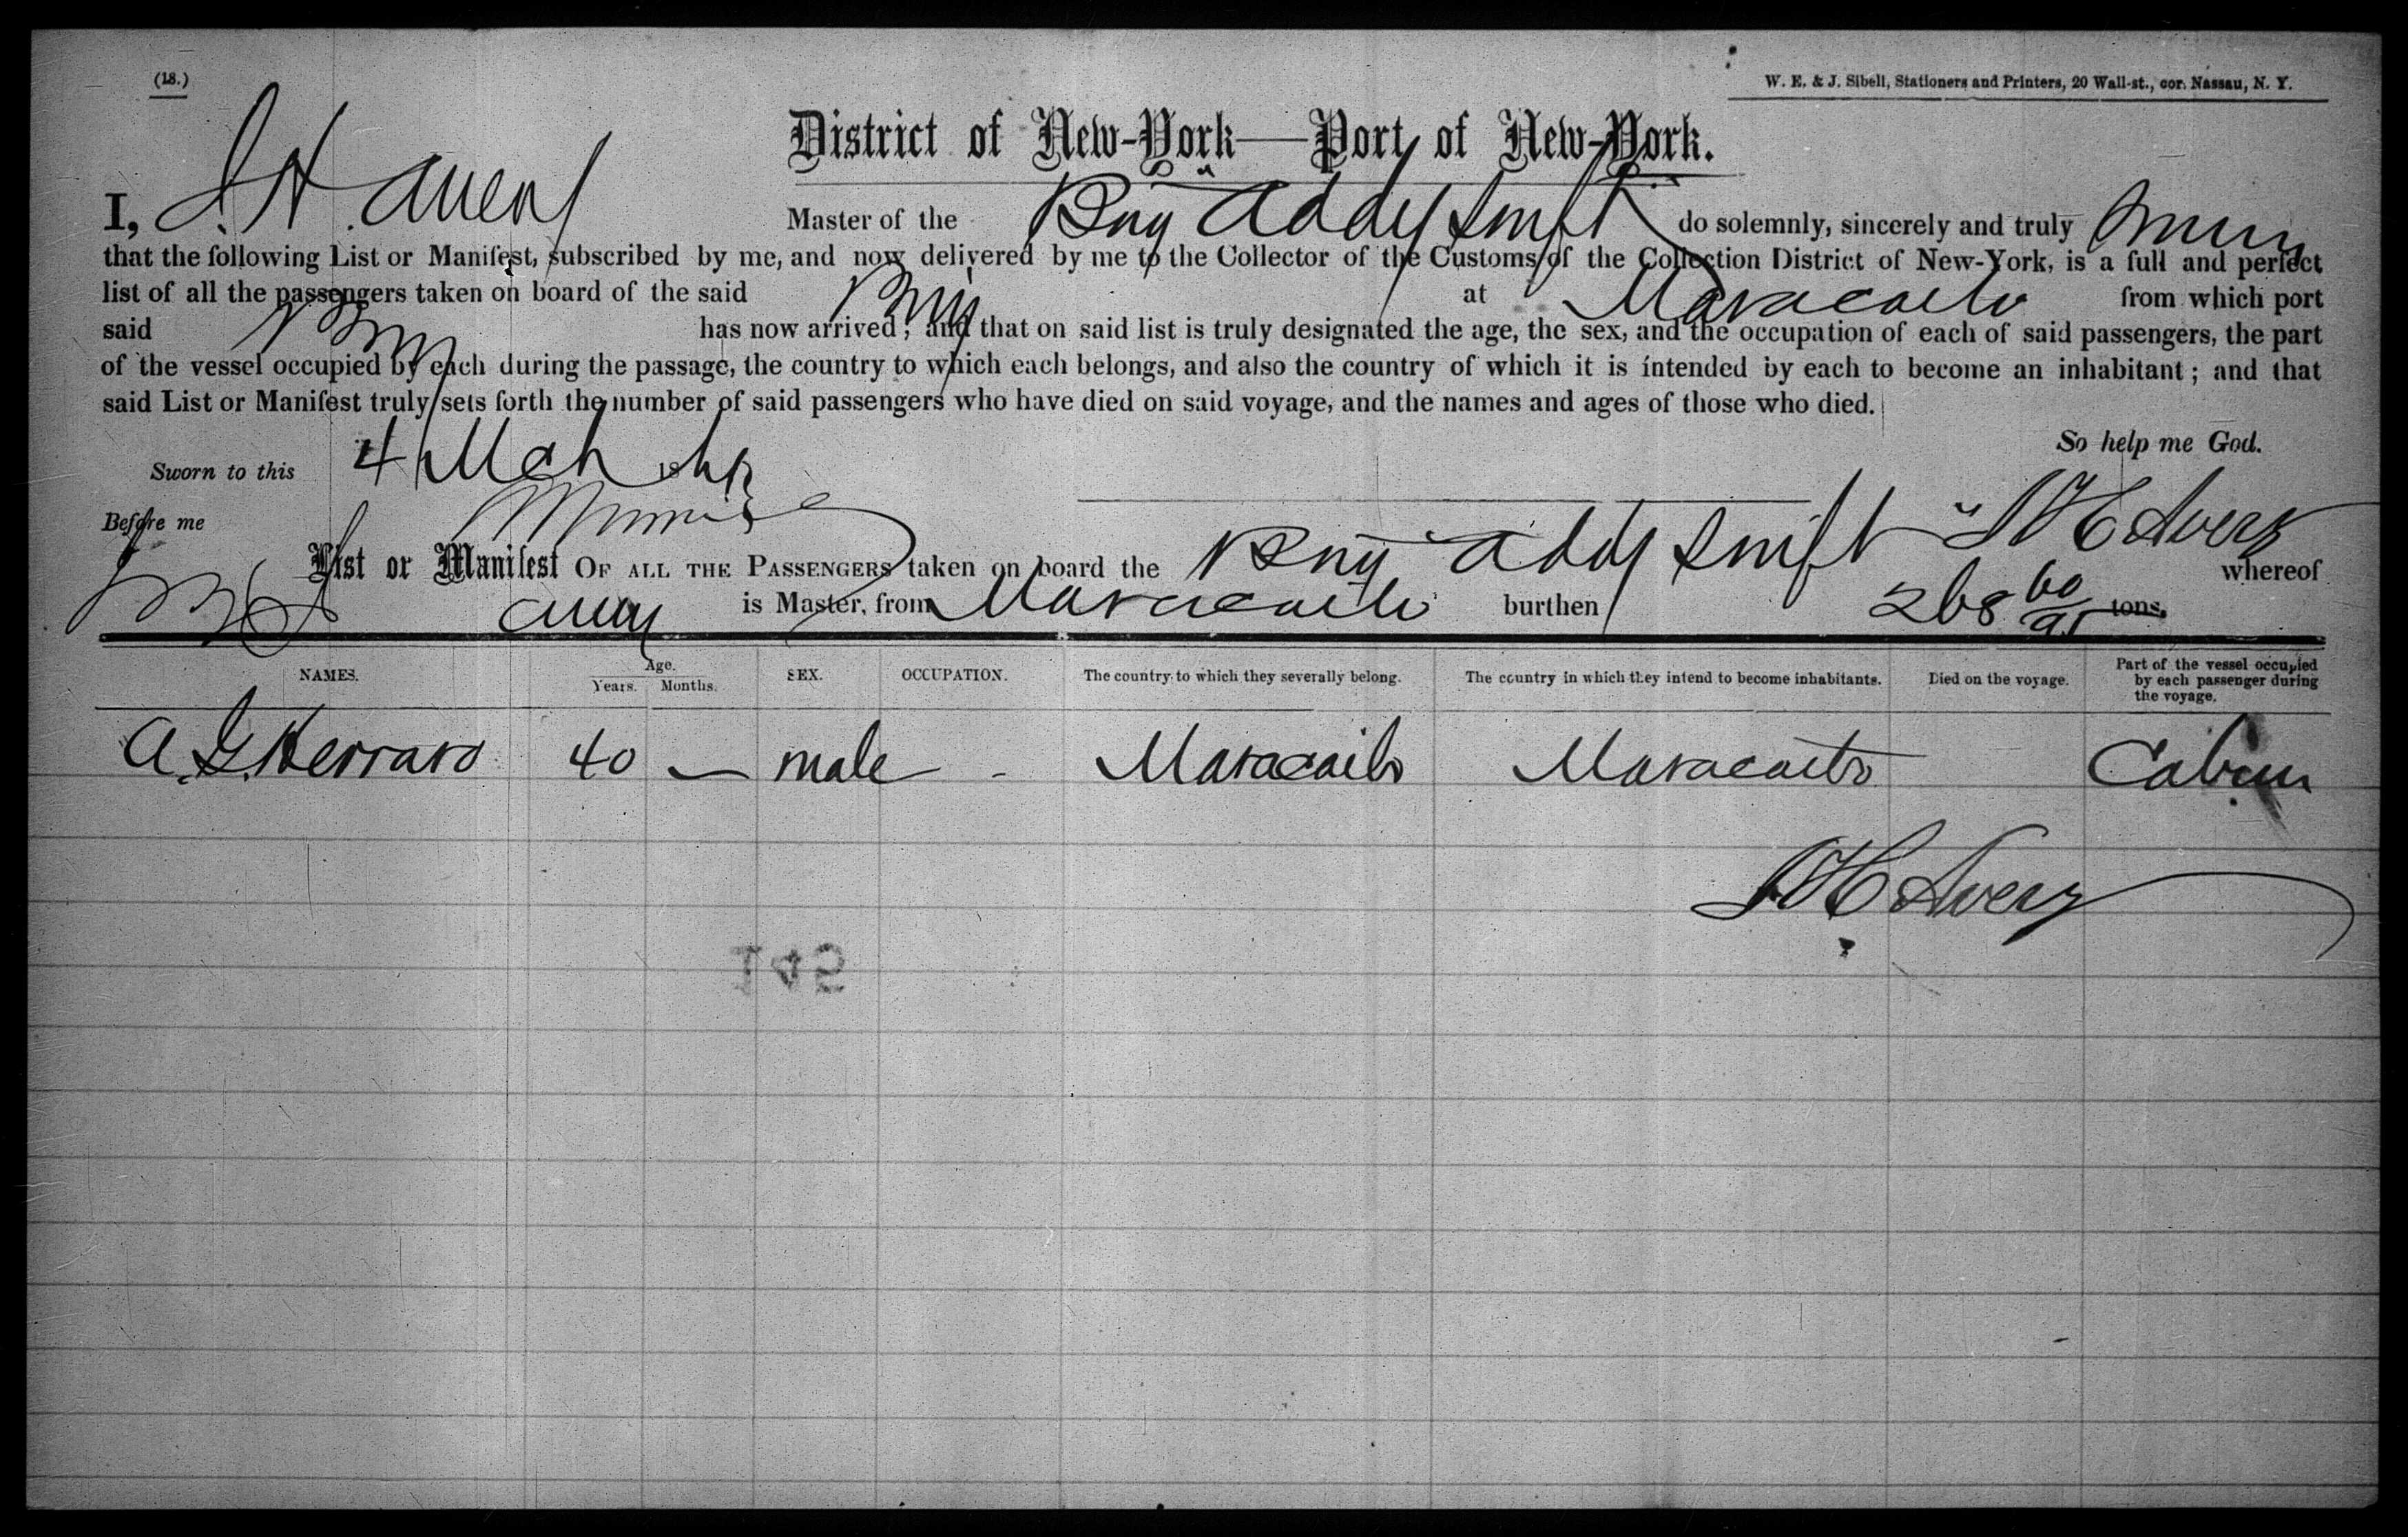 (18.)
W. E. & J. Sibell, Stationers and Printers, 20 Wall-st., cor. Nassau, N. Y.
District of New-York—Port of New-York.
I, J. H. Avery Master of the Brig Addy Swift do solemnly, sincerely and truly swear
that the following List or Manifest, subscribed by me, and now delivered by me to the Collector of the Customs of the Collection District of New-York, is a full and perfect
list of all the passengers taken on board of the said Brig at Maracaibo from which port
said Brig has now arrived; and that on said list is truly designated the age, the sex, and the occupation of each of said passengers, the part
of the vessel occupied by each during the passage, the country to which each belongs, and also the country of which it is intended by each to become an inhabitant; and that
said List or Manifest truly sets forth the number of said passengers who have died on said voyage, and the names and ages of those who died.
So help me God.
Sworn to this 4 Mch 18
Before me J H Avery
List or Manifest OF ALL THE PASSENGERS taken on board the Brig Addy Swift whereof
Avery is Master, from Maracaibo burthen 268 60/95 tons.
NAMES. Age. Years. Months. SEX. OCCUPATION. The country to which they severally belong. The country in which they intend to become inhabitants. Died on the voyage. Part of the vessel occupied by each passenger during the voyage.
A. G. Herraro 40 — male - Maracaibo Maracaibo Cabin
J H Avery
145